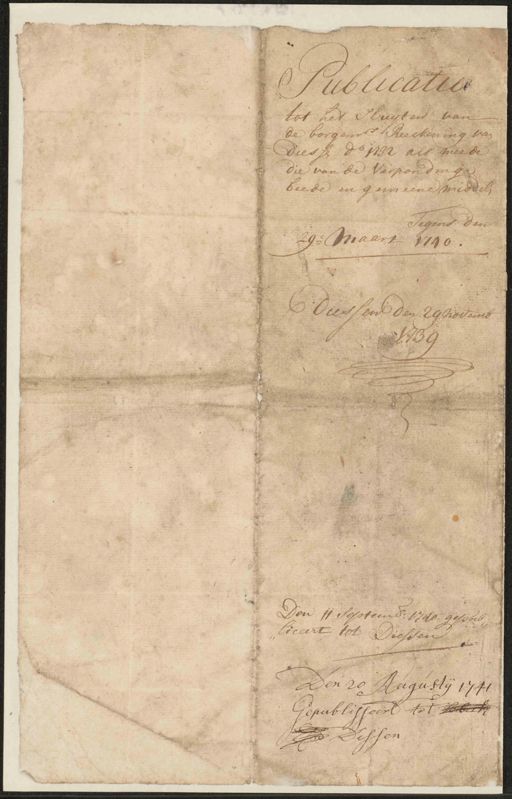 Publicatie
tot het sluyten van
de borgem.rs Reeckening van
Diess. d'o 1732 als meede
die van de Verpondinge
beede en gemeene middel
Tegens den
29: Maart 1740.
Diessen den 29 novemb
1739
Den 11 Septemb.r 1740 gepub„
„liceert tot Diessen
Den 20 Augustij 1741
Gepublisseert tot
Dissen